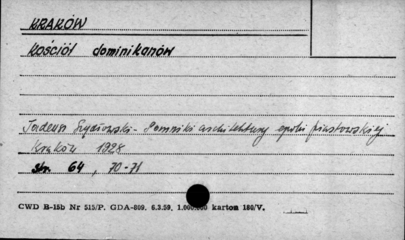 KRAKÓW
KOŚCIÓŁ dominikanów
Tadeusz Szydłowski - Pomniki architektury epoki piastowskiej
Kraków 1928
str. 64, 70-71
CWD B-15b Nr 515/P. GDA-809. 6.3.59. 1.000.000 karton 180/V.